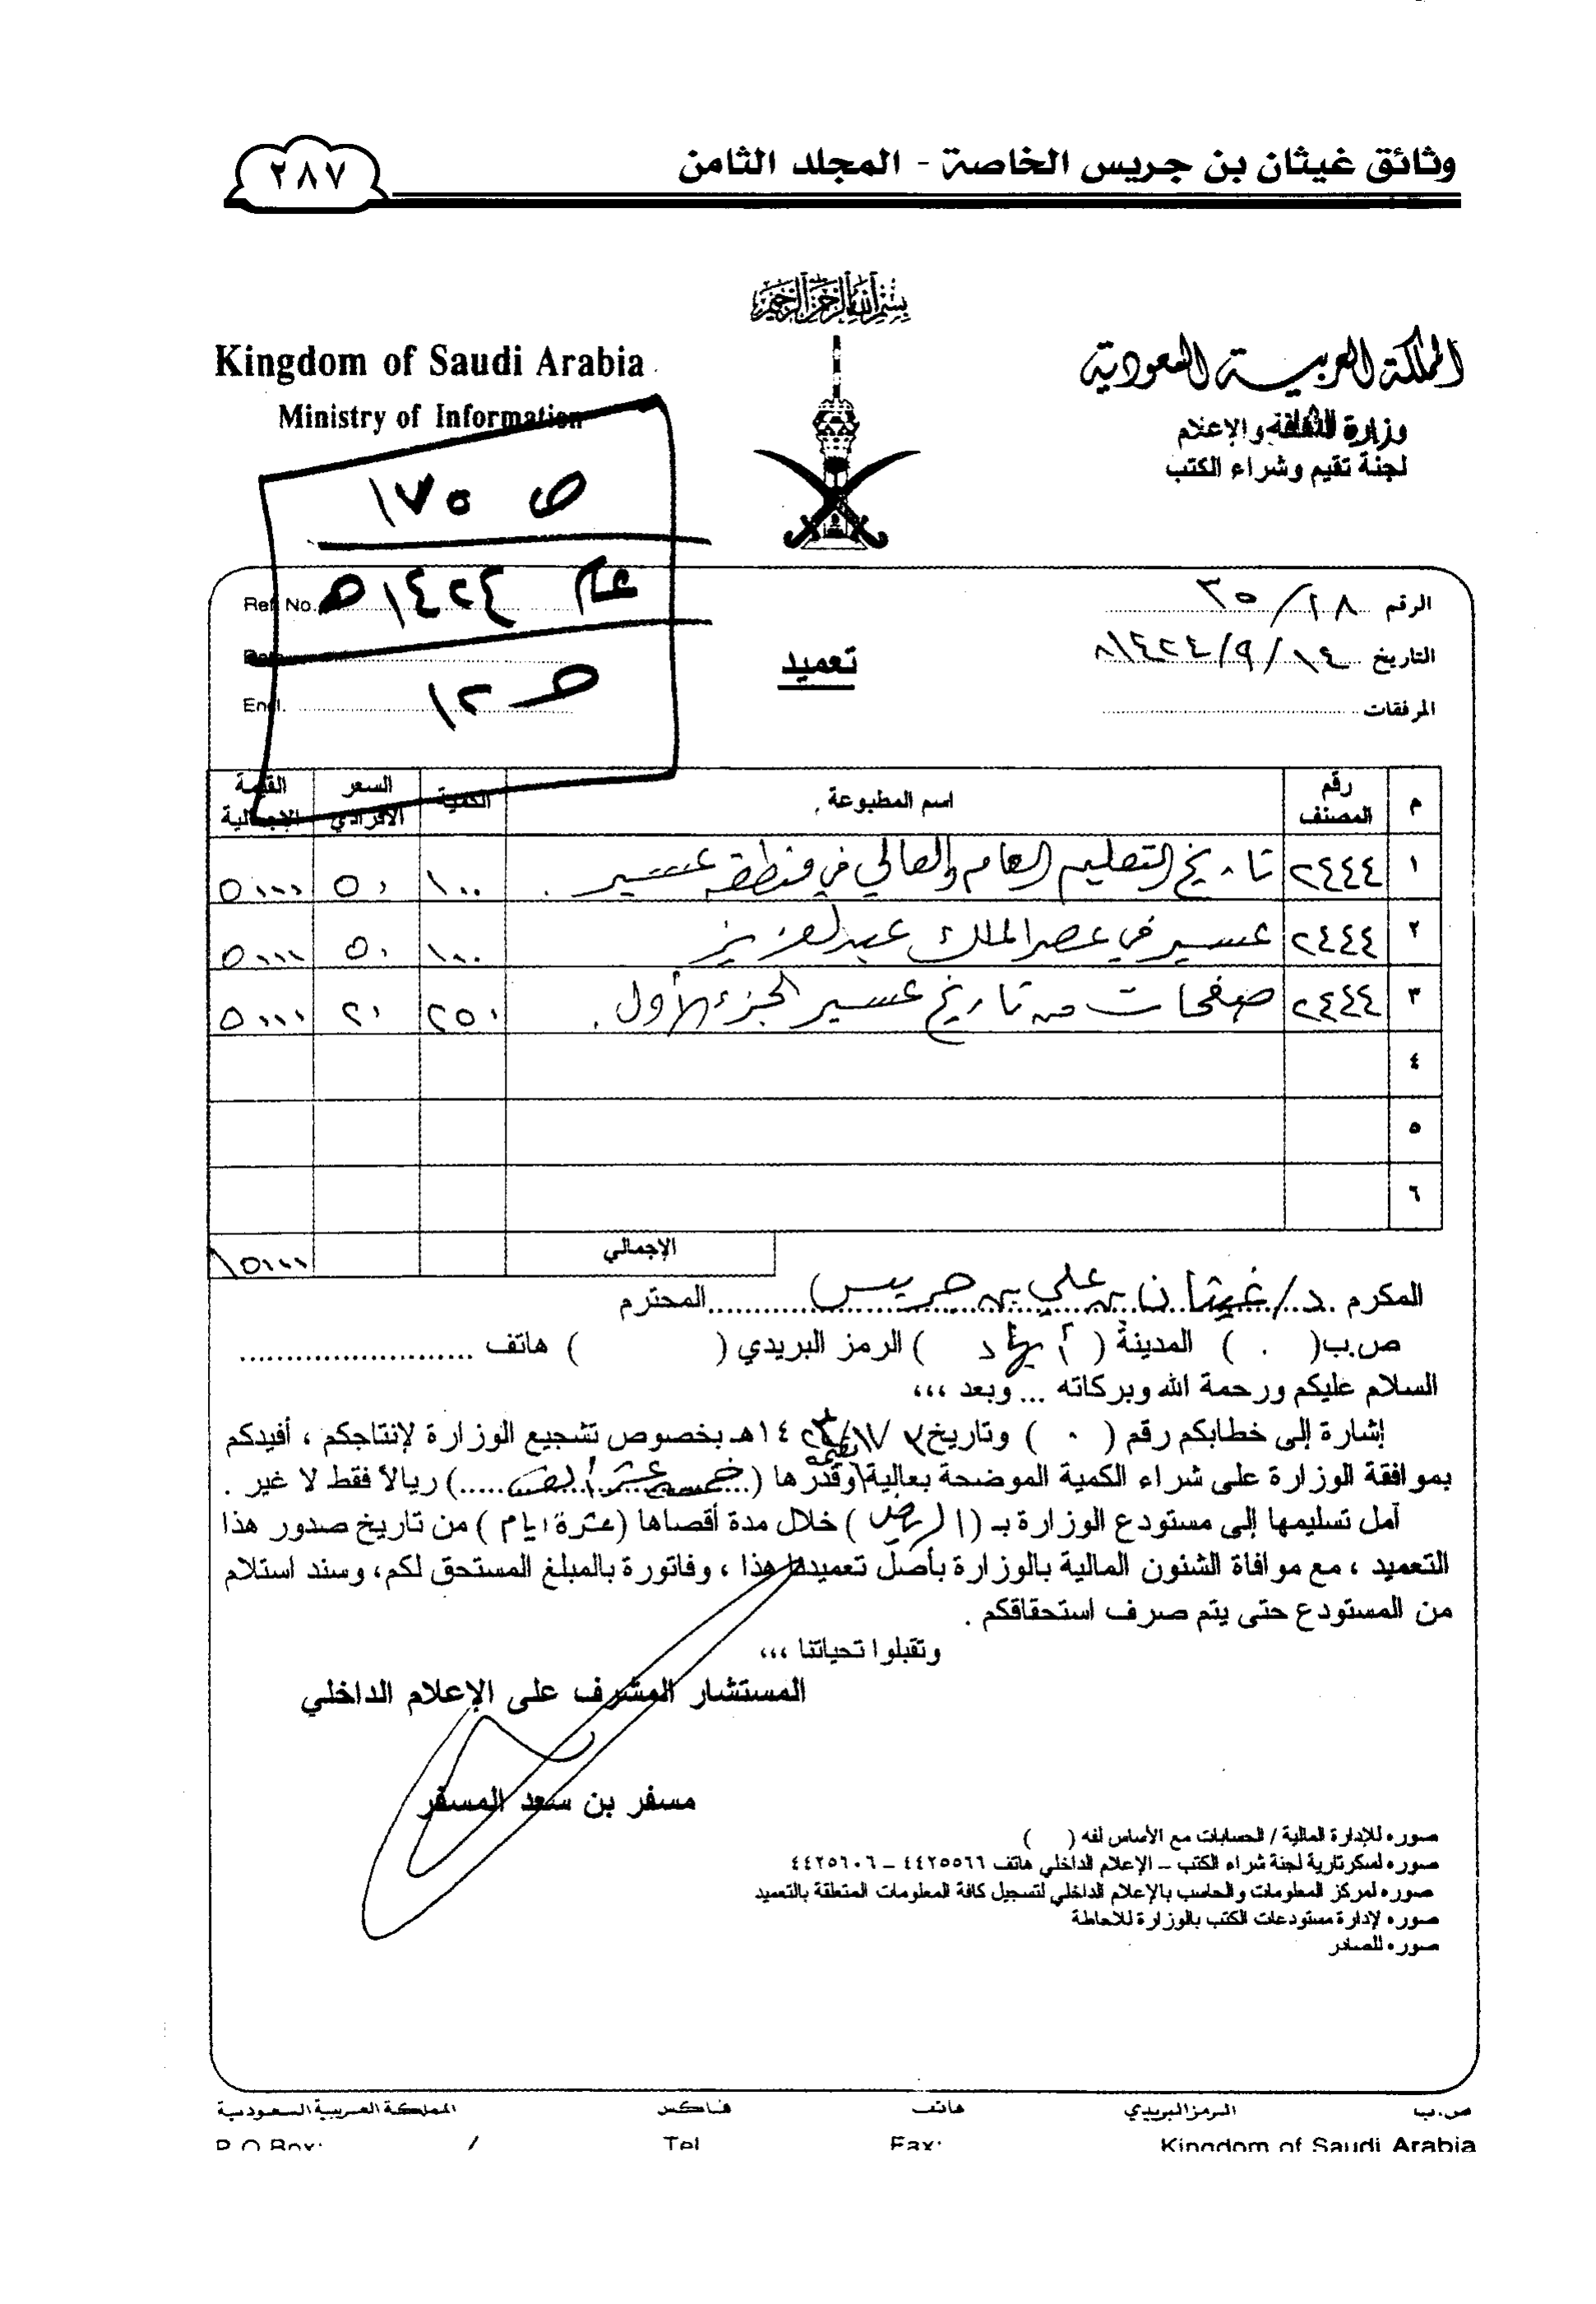 وثائق غيثان بن جريس الخاصة - المجلد الثامن
٢٨٧
بسم الله الرحمن الرحيم
المملكة العربية السعودية
وزارة الثقافة والإعلام
لجنة تقيم وشراء الكتب
Kingdom of Saudi Arabia
Ministry of Information
ص ١٧٥
عام ١٤٢٤هـ
ص ١٢
الرقم ٣٥/١٨
التاريخ ١٤/٩/١٤٢٤
المرفقات
Ref. No.
Date
Encl.
تعميد
م رقم المصنف اسم المطبوعة الكمية السعر الافرادي القيمة الإجمالية
١ ٢٤٤٤ تاريخ التعليم العام والعالي في منطقة عسير . ١٠٠ ٥٠ ٥٠٠٠
٢ ٢٤٤٤ عسير في عصر الملك عبدالعزيز ١٠٠ ٥٠ ٥٠٠٠
٣ ٢٤٤٤ صفحات من تاريخ عسير الجزء الأول . ٢٥٠ ٢٠ ٥٠٠٠
٤
٥
٦
الإجمالي ١٥٠٠٠
المكرم د/ غيثان بن علي بن جريس المحترم
ص.ب( . ) المدينة ( أبها ) الرمز البريدي ( ) هاتف
السلام عليكم ورحمة الله وبركاته ... وبعد ،،،
إشارة إلى خطابكم رقم ( . ) وتاريخ ١٤هـ بخصوص تشجيع الوزارة لإنتاجكم ، أفيدكم
بموافقة الوزارة على شراء الكمية الموضحة بعالية وقدرها (خمسة عشر ألف) ريالاً فقط لا غير .
آمل تسليمها إلى مستودع الوزارة بـ (الرياض) خلال مدة أقصاها (عشرة أيام) من تاريخ صدور هذا
التعميد ، مع موافاة الشئون المالية بالوزارة بأصل تعميدنا هذا ، وفاتورة بالمبلغ المستحق لكم، وسند استلام
من المستودع حتى يتم صرف استحقاقكم .
وتقبلوا تحياتنا ،،،
المستشار المشرف على الإعلام الداخلي
مسفر بن سعد المسفر
صوره للإدارة المالية / الحسابات مع الأساس لفه ( )
صوره لسكرتارية لجنة شراء الكتب – الإعلام الداخلي هاتف ٤٤٢٥٥٦٦ – ٤٤٢٥٦٠٦
صوره لمركز المعلومات والحاسب بالإعلام الداخلي لتسجيل كافة المعلومات المتعلقة بالتعميد
صوره لإدارة مستودعات الكتب بالوزارة للاحاطة
صوره للصادر
ص.ب الرمز البريدي هاتف فاكس المملكة العربية السعودية
P.O.Box: / Tel Fax: Kingdom of Saudi Arabia